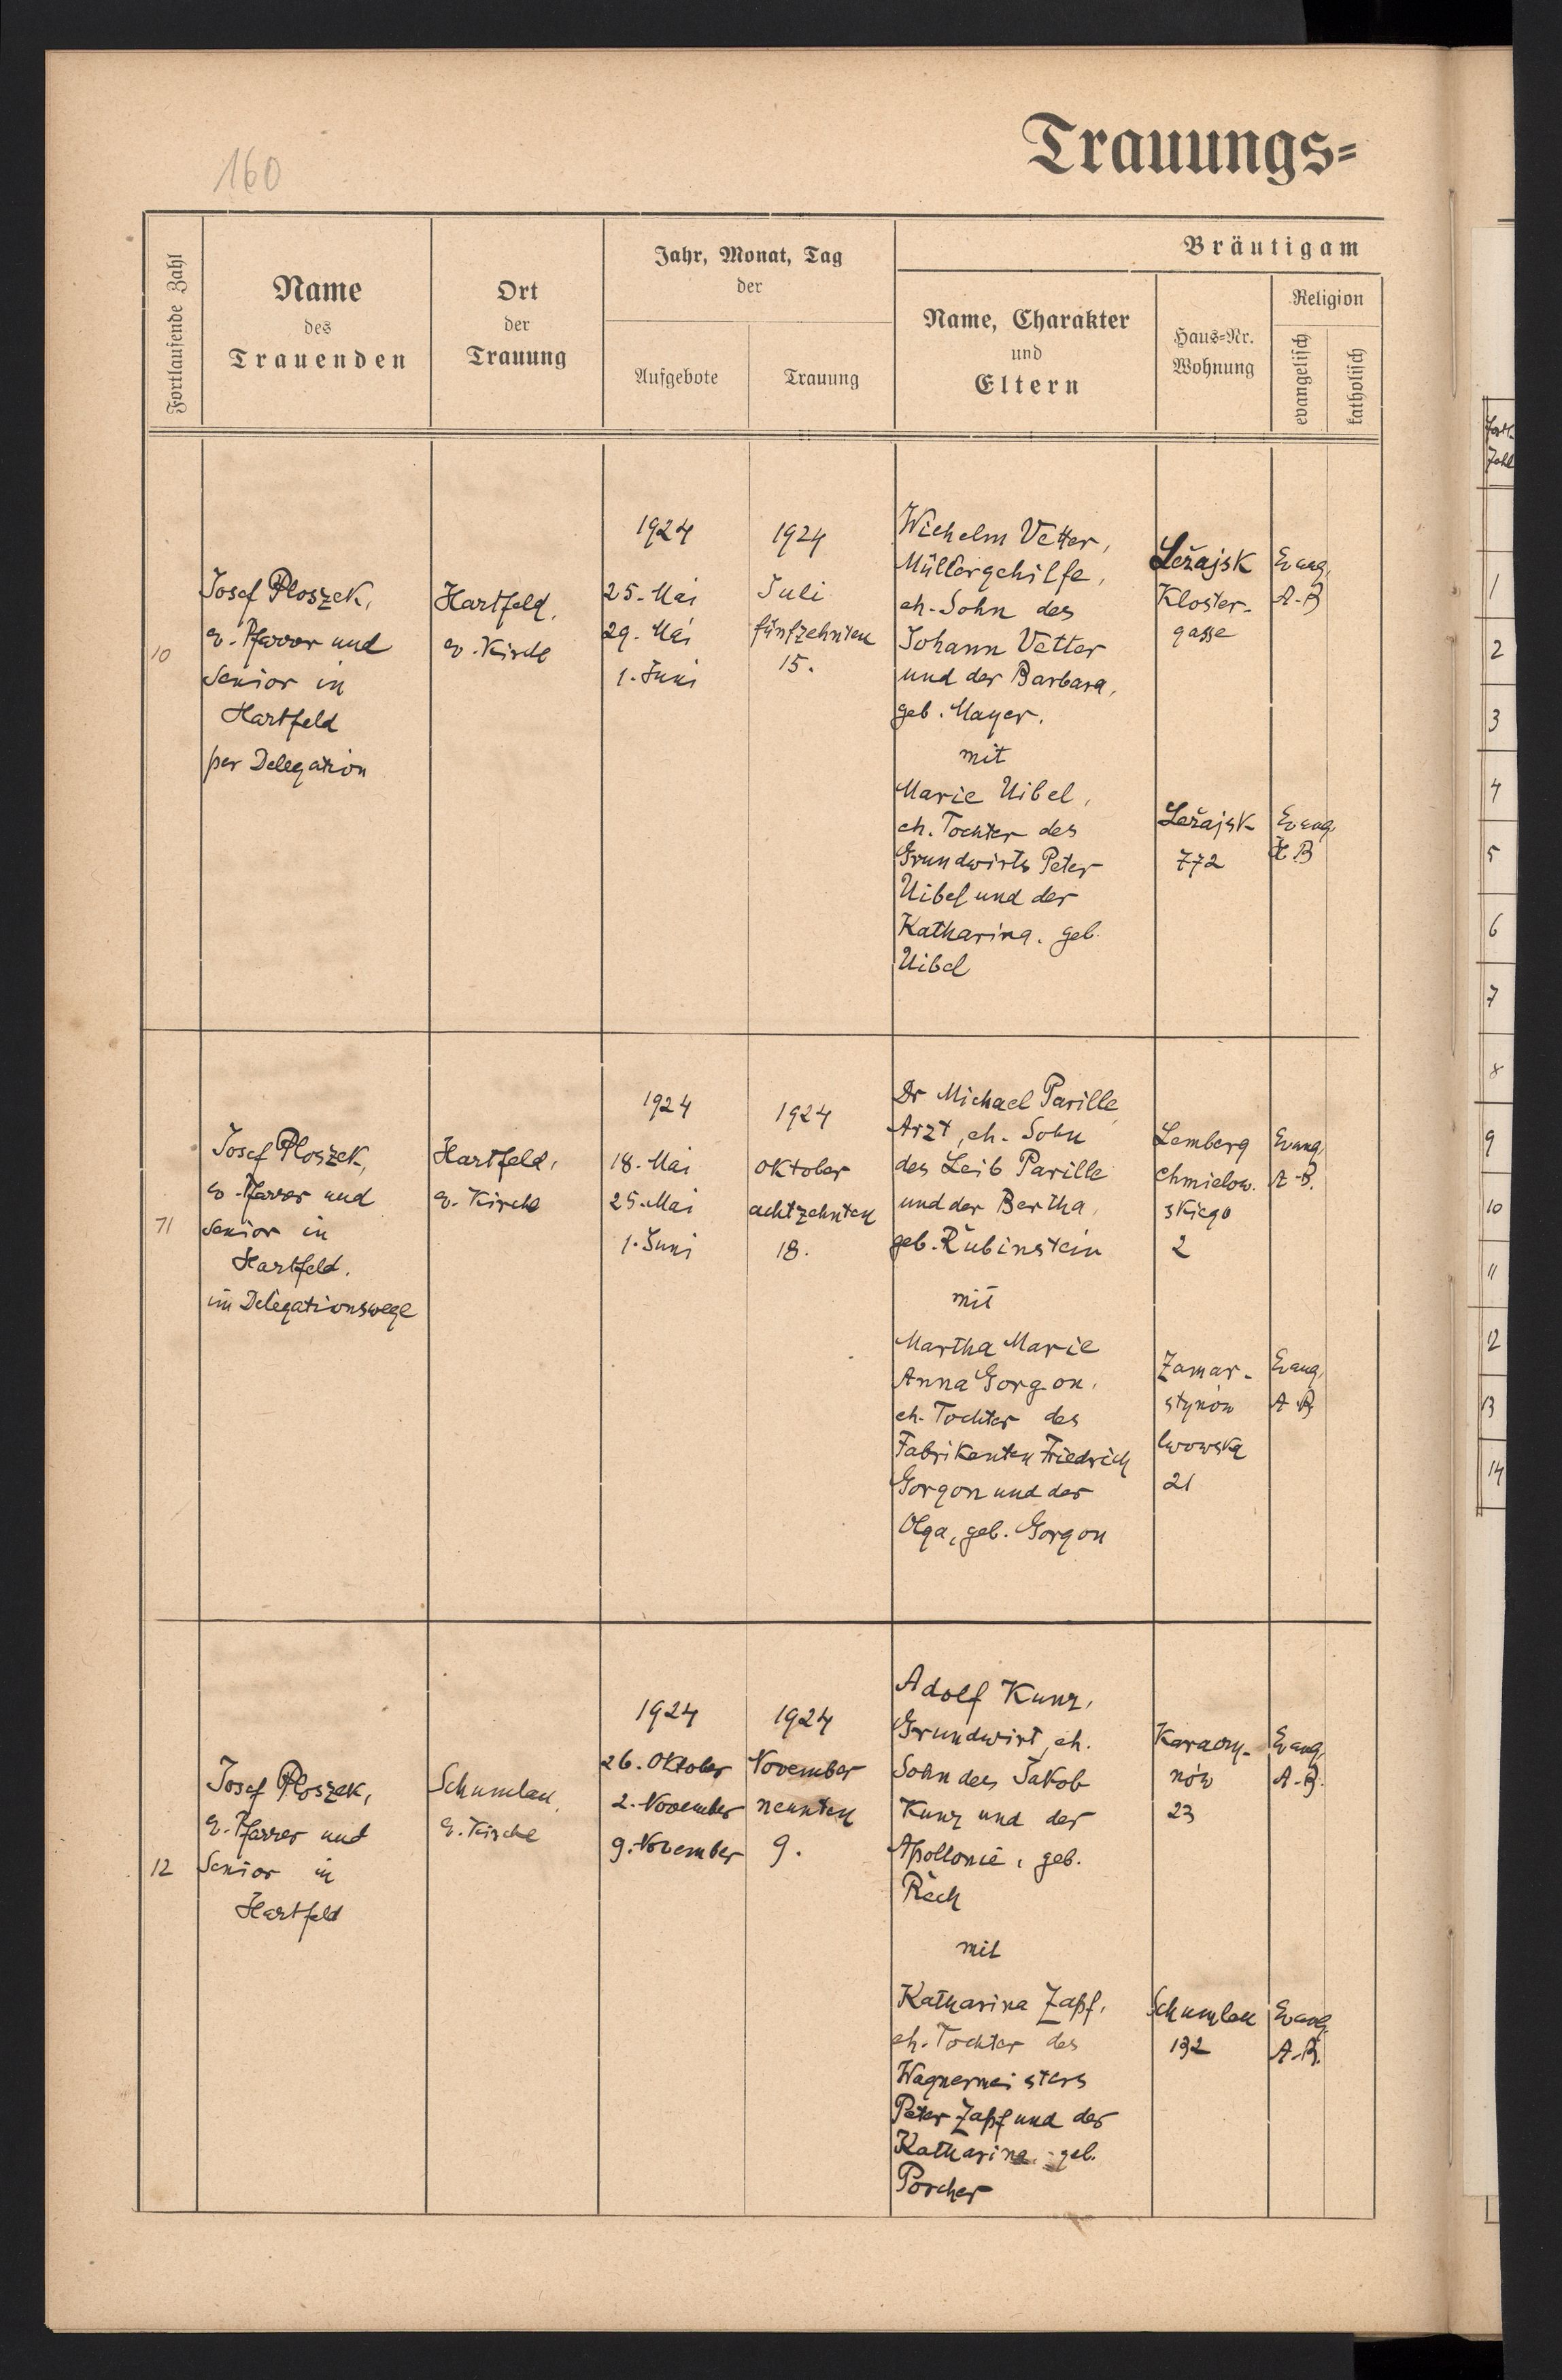 160
Trauungs=
Fortlaufende Zahl
Name
des
Trauenden
Ort
der
Trauung
Jahr, Monat, Tag
der
Aufgebote
Trauung
Bräutigam
Name, Charakter
und
Eltern
Haus=Nr.
Wohnung
Religion
evangelisch
katholisch
10
Josef Ploszek,
ev. Pfarrer und
Senior in
Hartfeld
per Delegation
Hartfeld,
ev. Kirche
1924
25. Mai
29. Mai
1. Juni
1924
Juli
fünfzehnten
15.
Wiehelm Vetter,
Müllergehilfe,
eh. Sohn des
Johann Vetter
und der Barbara,
geb. Mayer.
mit
Marie Uibel,
eh. Tochter des
Grundwirts Peter
Uibel und der
Katharina, geb.
Uibel
Ležajsk
Kloster-
gasse
Evang.
A. B
Ležajsk
772
Evang.
H. B
11
Josef Ploszek,
ev. Pfarrer und
Senior in
Hartfeld.
im Delegationswege
Hartfeld,
ev. Kirche
1924
18. Mai
25. Mai
1. Juni
1924
Oktober
achtzehnten
18.
Dr Michael Parille
Arzt, eh. Sohn
des Leib Parille
und der Bertha,
geb. Rubinstein
mit
Martha Marie
Anna Gorgon,
eh. Tochter des
Fabrikanten Friedrich
Gorgon und der
Olga, geb. Gorgon
Lemberg
Chmielow.
skiego
2
Evang.
A. B.
Zamar-
stynów
lwowska
21
Evang.
A. B
12
Josef Ploszek,
ev. Pfarrer und
Senior in
Hartfeld
Schumlau,
ev. Kirche
1924
26. Oktober
2. November
9. November
1924
November
neunten
9.
Adolf Kunz,
Grundwirt, eh.
Sohn des Jakob
Kunz und der
Apollonie, geb.
Rech
mit
Katharina Zapf,
eh. Tochter des
Wagnermeisters
Peter Zapf und der
Katharina, geb.
Porcher
nów
23
Evang.
A. B.
Schumlau
132
Evang.
A. B.
Fortl.
Zahl
1
2
3
4
5
6
7
8
9
10
11
12
13
14